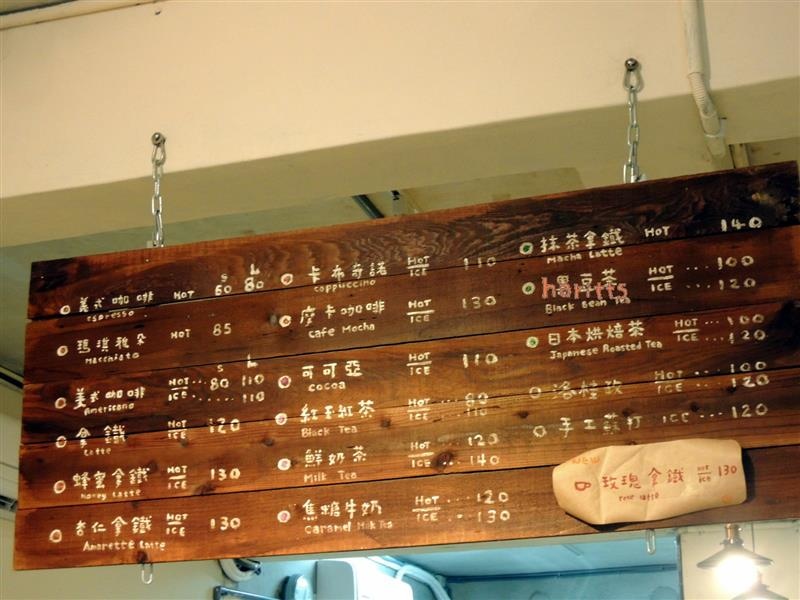 S L
美式咖啡 HOT 60 80
espresso
瑪琪雅朵 HOT 85
Macchiato
S L
美式咖啡 HOT ... 80 110
Americano ICE ...... 110
拿鐵 HOT ICE 120
Latte
蜂蜜拿鐵 HOT ICE 130
Honey Latte
杏仁拿鐵 HOT ICE 130
Amarette Latte
卡布奇諾 HOT ICE 110
Coppuccino
摩卡咖啡 HOT ICE 130
Cafe Mocha
可可亞 HOT ICE 110
cocoa
紅玉紅茶 HOT ... 80
Black Tea ICE ... 110
鮮奶茶 HOT ... 120
Milk Tea ICE ... 140
焦糖牛奶 HOT ... 120
Caramel Milk Tea ICE ... 130
抹茶拿鐵 HOT 140
Macha Latte
黑豆茶 HOT ... 100
Black Bean Tea ICE ... 120
haritts
日本烘焙茶 HOT ... 100
Japanese Roasted Tea ICE ... 120
洛桂玫 HOT ... 100
ICE ... 120
手工蘇打 ICE .... 120
NEW
玫瑰拿鐵 HOT ICE 130
rose latte